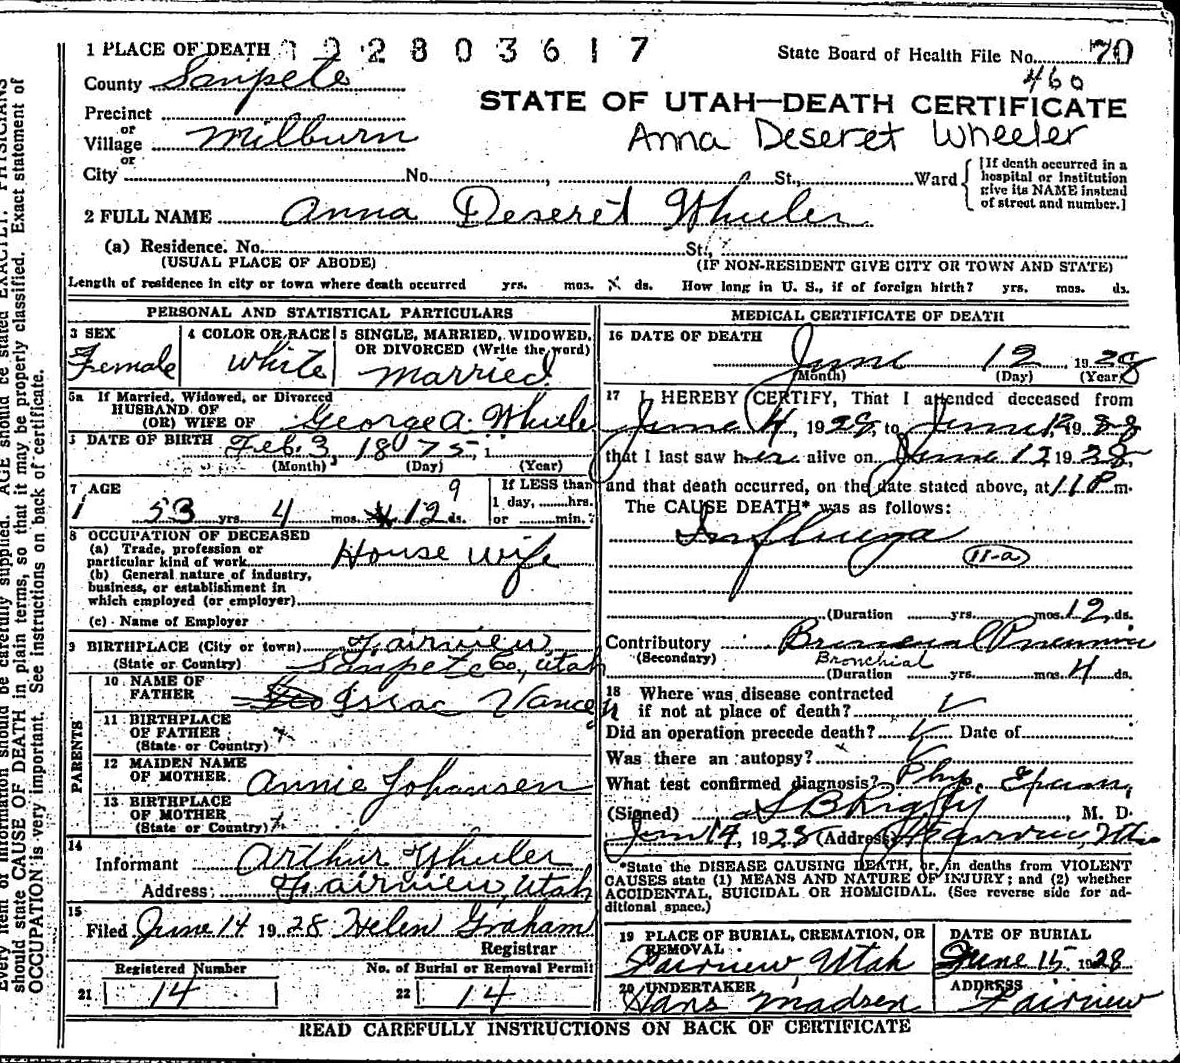 1 PLACE OF DEATH 2 2 8 0 3 6 1 7
State Board of Health File No. 70
County Sanpete
460
STATE OF UTAH—DEATH CERTIFICATE
Precinct
or
Village Milburn
Anna Deseret Wheeler
or
City No. , St., Ward
[If death occurred in a
hospital or institution
give its NAME instead
of street and number.]
2 FULL NAME Anna Deseret Wheeler
(a) Residence. No. St.,
(USUAL PLACE OF ABODE) (IF NON-RESIDENT GIVE CITY OR TOWN AND STATE)
Length of residence in city or town where death occurred yrs. mos. ds. How long in U. S., if of foreign birth? yrs. mos. ds.
PERSONAL AND STATISTICAL PARTICULARS
3 SEX
Female
4 COLOR OR RACE
White
5 SINGLE, MARRIED, WIDOWED,
OR DIVORCED (Write the word)
Married
5a If Married, Widowed, or Divorced
HUSBAND OF
(OR) WIFE OF George A. Wheeler
DATE OF BIRTH Feb. 3, 1875
(Month) (Day) (Year)
7 AGE
53 yrs. 4 mos. 12 9 ds.
If LESS than
1 day, hrs.
or min.
8 OCCUPATION OF DECEASED
(a) Trade, profession or
particular kind of work House wife
(b) General nature of industry,
business, or establishment in
which employed (or employer)
(c) Name of Employer
9 BIRTHPLACE (City or town) Fairview
(State or Country) Sanpete Co, Utah
PARENTS
10 NAME OF
FATHER Issac Vance
11 BIRTHPLACE
OF FATHER
(State or Country)
12 MAIDEN NAME
OF MOTHER Annie Johansen
13 BIRTHPLACE
OF MOTHER
(State or Country)
14
Informant Arthur Wheeler
Address: Fairview, Utah
15
Filed June 14 1928 Helen Graham
Registrar
Registered Number
21 14
No. of Burial or Removal Permit
22 14
MEDICAL CERTIFICATE OF DEATH
16 DATE OF DEATH
June 12 1928
(Month) (Day) (Year)
17 I HEREBY CERTIFY, That I attended deceased from
June 4, 1928, to June 12, 1928
that I last saw her alive on June 12 1928,
and that death occurred, on the date stated above, at 11 P m.
The CAUSE DEATH* was as follows:
Influenza
11-a
(Duration yrs. mos. 12 ds.
Contributory Bronchial Pneumonia
(Secondary) Bronchial
(Duration yrs. mos. 4 ds.
18 Where was disease contracted
if not at place of death?
Did an operation precede death? Date of
Was there an autopsy?
What test confirmed diagnosis? Phys. Exam.
(Signed) S B Rigby, M. D.
June 14, 1928 (Address) Fairview, Utah
*State the DISEASE CAUSING DEATH, or, in deaths from VIOLENT
CAUSES state (1) MEANS AND NATURE OF INJURY; and (2) whether
ACCIDENTAL, SUICIDAL OR HOMICIDAL. (See reverse side for ad-
ditional space.)
19 PLACE OF BURIAL, CREMATION, OR
REMOVAL
Fairview Utah
DATE OF BURIAL
June 15 1928
20 UNDERTAKER
Hans Madsen
ADDRESS
Fairview
READ CAREFULLY INSTRUCTIONS ON BACK OF CERTIFICATE
should state CAUSE OF DEATH in plain terms, so that it may be properly classified. Exact statement of
OCCUPATION is very important. See instructions on back of certificate.